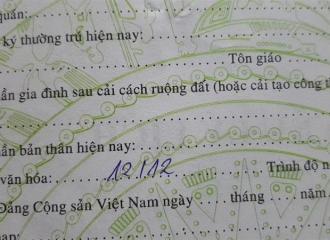 quán:
ký thường trú hiện nay:
Tôn giáo
ần gia đình sau cải cách ruộng đất (hoặc cải tạo công th
ần bản thân hiện nay:
văn hóa: 12/12 Trình độ n
Đảng Cộng sản Việt Nam ngày tháng năm
an: